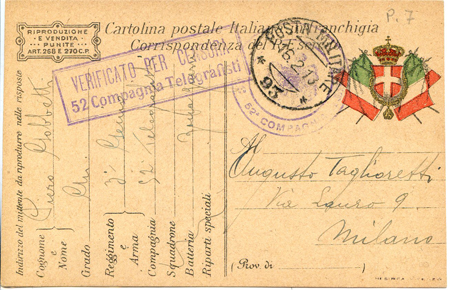 P. 7
RIPRODUZIONE
E VENDITA
PUNITE
ART. 268 E 290 C.P.
Cartolina postale Italiana in franchigia
Corrispondenza del
POSTA MILITARE
93
VERIFICATO PER CENSURA
52 Compagnia Telegrafisti
52ª COMPAGNIA
Indirizzo del mittente da riprodurre nelle risposte
Cognome
e
Nome
Grado
Reggimento
e
Arma
Compagnia
Squadrone
Batteria
Riparti speciali
3° Genio
52ª Telegrafisti
Al
Augusto Taglioretti
Via Lauro 9
Milano
(Prov di